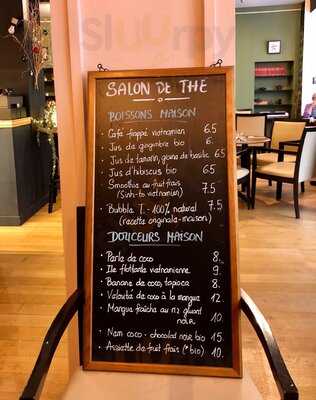 Sluurpy
SALON DE THE
BOISSONS MAISON
• Café frappé vietnamien 6.5
• Jus de gingembre bio 6.
• Jus de tamarin, graine de basilic 6.5
• Jus d'hibiscus bio 6.5
• Smoothie au fruit frais 7.5
(Sinh-to vietnamien)
• Bubble T. - 100% natural 7.5
(recette originale - maison)
DOUCEURS MAISON
• Perle de coco 8.
• Ile flottante vietnamienne 9.
• Banane de coco, tapioca 8.
• Velouté de coco à la mangue 12.
• Mangue fraîche au riz gluant
noir 10.
• Nem coco - chocolat noir bio 15.
• Assiette de fruit frais (*bio) 10.